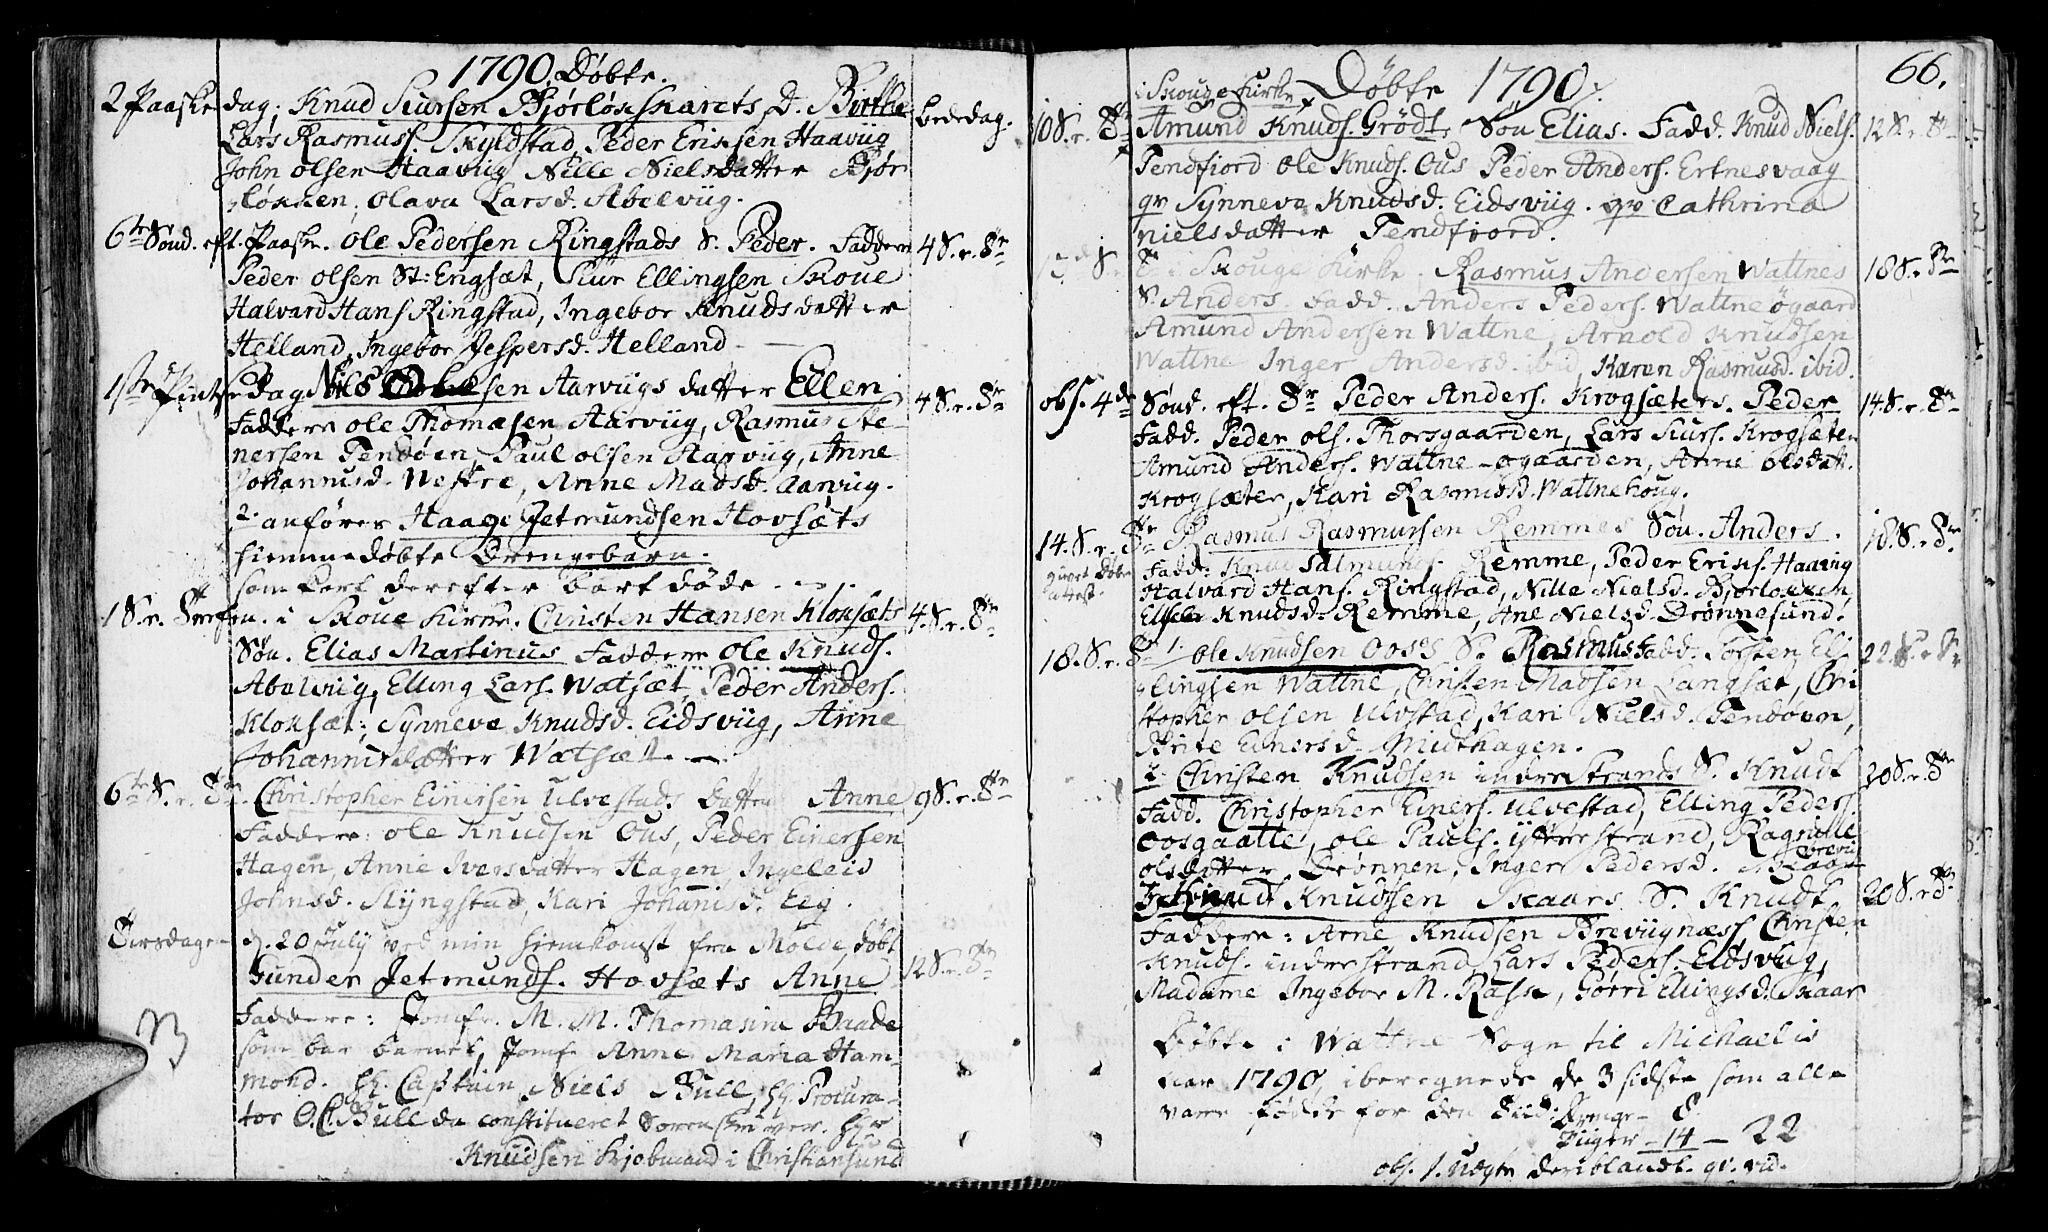 1790. Døbte.
2 Paaske dag, Knud Siursen Bjørløkskarets D. Birthe
Lars Rasmuss. Skyldstad, Peder Erichsen Haaviig
Bededag.
John Olsen Haaviig Nille Nielsdatter Bjør
løkken, Olava Larsd. Abelviig.
6te Sønd. eft. Paaske. Ole Pedersen Ringstads S. Peder. Faddere
4 S. r. Tr
Peder Olsen St: Engsæt, Siur Ellingsen Skoue
Halvard Hans. Ringstad, Ingebor Knudsdatter
Helland, Ingebor Jespersd. Helland
1ste Pintse Dag Niels Aarviigs datter Ellen
4 S. r. Tr
Faddere Ole Thomæsen Aarviig, Rasmus Ste-
nersen Tendøen, Paul Olsen Aarviig, Anne
Johannusd. Westre, Anne Madsd. Aarviig.
2. anfører Haage Jetmundsen Hovsæts
hiemmedøbte Drengebarn.
som kort derefter bort døde.
1 S. r. Tr i Skoue Kirke. Christen Hansen Kloksæts
4. S. r. Tr
Søn. Elias Martinus Faddere Ole Knuds.
Abelviig, Elling Lars. Watsæt, Peder Anders.
Kloksæt, Synneve Knudsd. Eidsviig, Anne
Johannisdatter Watsæt.
6te S. r. Tr. Christopher Einersen Ulvestads Datter Anne
9 S. r. Tr
Faddere: Ole Knudsen Ous, Peder Einersen
Hagen, Anne Iversdatter Hagen, Ingeleid
Johnsd. Slyngstad, Kari Johanisd. Eeg.
Tirsdage d. 20 July ved min hiemkomst fra Molde, døbt
Gunder Jetmunds. Hovsæts Anne
12 S. r. Tr
Faddere: Jomfr. M. M. Thomasine Baade
som bar barnet, Jomf. Anne Maria Ham-
mond. Hr. Captain Niels Bull, Hr. Procura-
tor O. C. Bull da constitueret Sorenskriver. Hr
Knudsen Kjøbmand i Christiansund
66.
i Skouge Kirke Døbte 1790.
10 S. r. Tr Amund Knuds. Grødt, Søn Elias. Fadd. Knud Niels.
12 S. r. Tr
Tendfiord Ole Knuds. Ous Peder Anders. Ertnesvaag
qv Synneve Knudsd. Eidsviig. qv Cathrina
Nielsdatter Tendfiord.
13de S. r. Tr i Skouge Kirke. Rasmus Andersen Wattnes
18 S. r. Tr
S. Anders. Fadd. Anders Peders. Wattneøgaard
Amund Andersen Wattne, Arnold Knudsen
Wattne Inger Andersd. ibid, Karen Rasmusd. ibid.
obs. 4de Sønd. eft. Tr Peder Anders. Krogsæters. Peder
14. S. r. Tr
Fadd. Peder Ols. Thorsgaarden, Lars Siurs. Krogsæter
Amund Anders. Wattne-øgaarden, Anne Olsdatt.
Krogsæter, Kari Rasmusd. Wattnehoug.
14. S. r. Tr Rasmus Rasmussen Remmes Søn. Anders.
18. S. r. Tr
givet Døbe
attest.
Fadd: Knud Salmunds. Remme, Peder Erichs. Haavig
Halvard Hans. Ringstad, Nille Nielsd. Bjørløkken,
Knudsd. Remme, Ane Nielsd. Drønnesund.
18. S. r. Tr 1. Ole Knudsen Ooss S. Rasmus Fadd: Torsten El-
22. S. r. Tr
lingsen Wattne, Christen Madsen Langsæt, Chri
stopher Olsen Ulvstad, Kari Nielsd. Tendøen,
Brite Einersd. Midthagen.
2. Christen Knudsen indrestrands S. Knudt
20 S. r. Tr
Fadd. Christopher Einers. Ulvestad, Elling Peders.
Oosgaatte, Ole Pauls. ytterstrand, Ragnille
Olsdatter Drønnen, Inger Pedersd.
3. Knud Knudsen Skaars S. Knudt
20 S. r. Tr
Faddere: Arne Knudsen Breviignæss Christen
Knuds. indrestrand Lars Peders. Eidsviig,
Madame Ingebor M. Rask, Gørri Ellingsd. Skaar
Døbte i Wattne Sogn til Michaelis
nar 1790, iberegnede de 3 sidste som alle
vare fødde før den Tiid: Drenge - 8
Piiger - 14 - 22
obs. 1. uægte deriblandt. qv. vid.